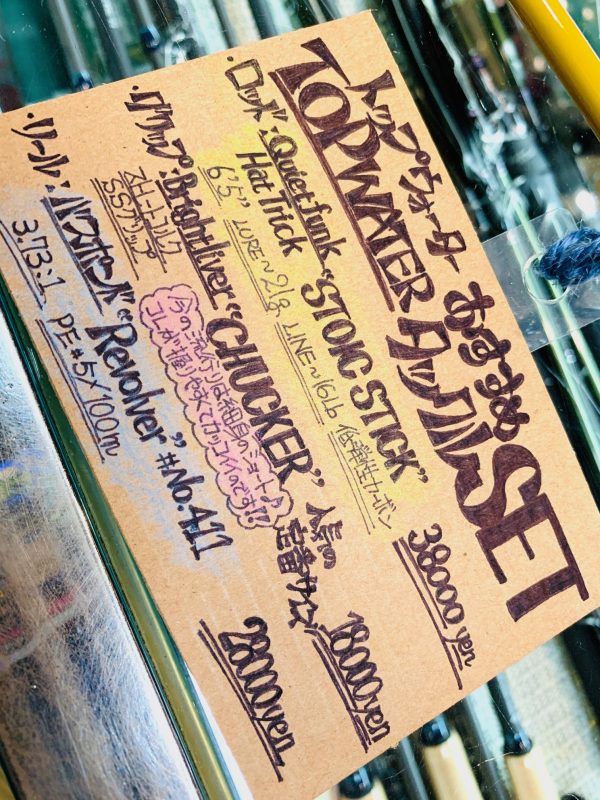 トップウォーター おすすめ
TOPWATER タックルSET
・ロッド:Quiet funk "STOIC STICK" 38000yen
Hat Trick
6'5" LURE~21g LINE~16lb 低弾性カーボン
・グリップ:Brightliver "CHUCKER" 人気の定番サイズ 18000yen
ストレートコルク
SSグリップ
今の流行りは細身のショート♪
コレが握りやすくてカッコイイのです!!
・リール:バスポンド "Revolver" #No.411 28000yen
3.73:1 PE#5×100m